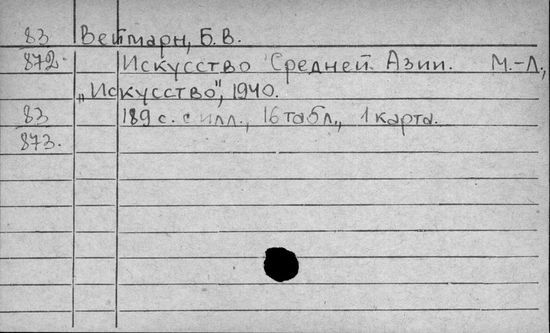 83 Веймарн, Б. В.
872. Искусство Средней Азии. М.-Л.,
„Искусство", 1940.
83 189 с. с илл., 16 табл., 1 карта.
873.